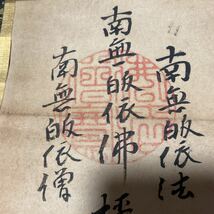 南無皈依法
南無皈依佛
南無皈依僧